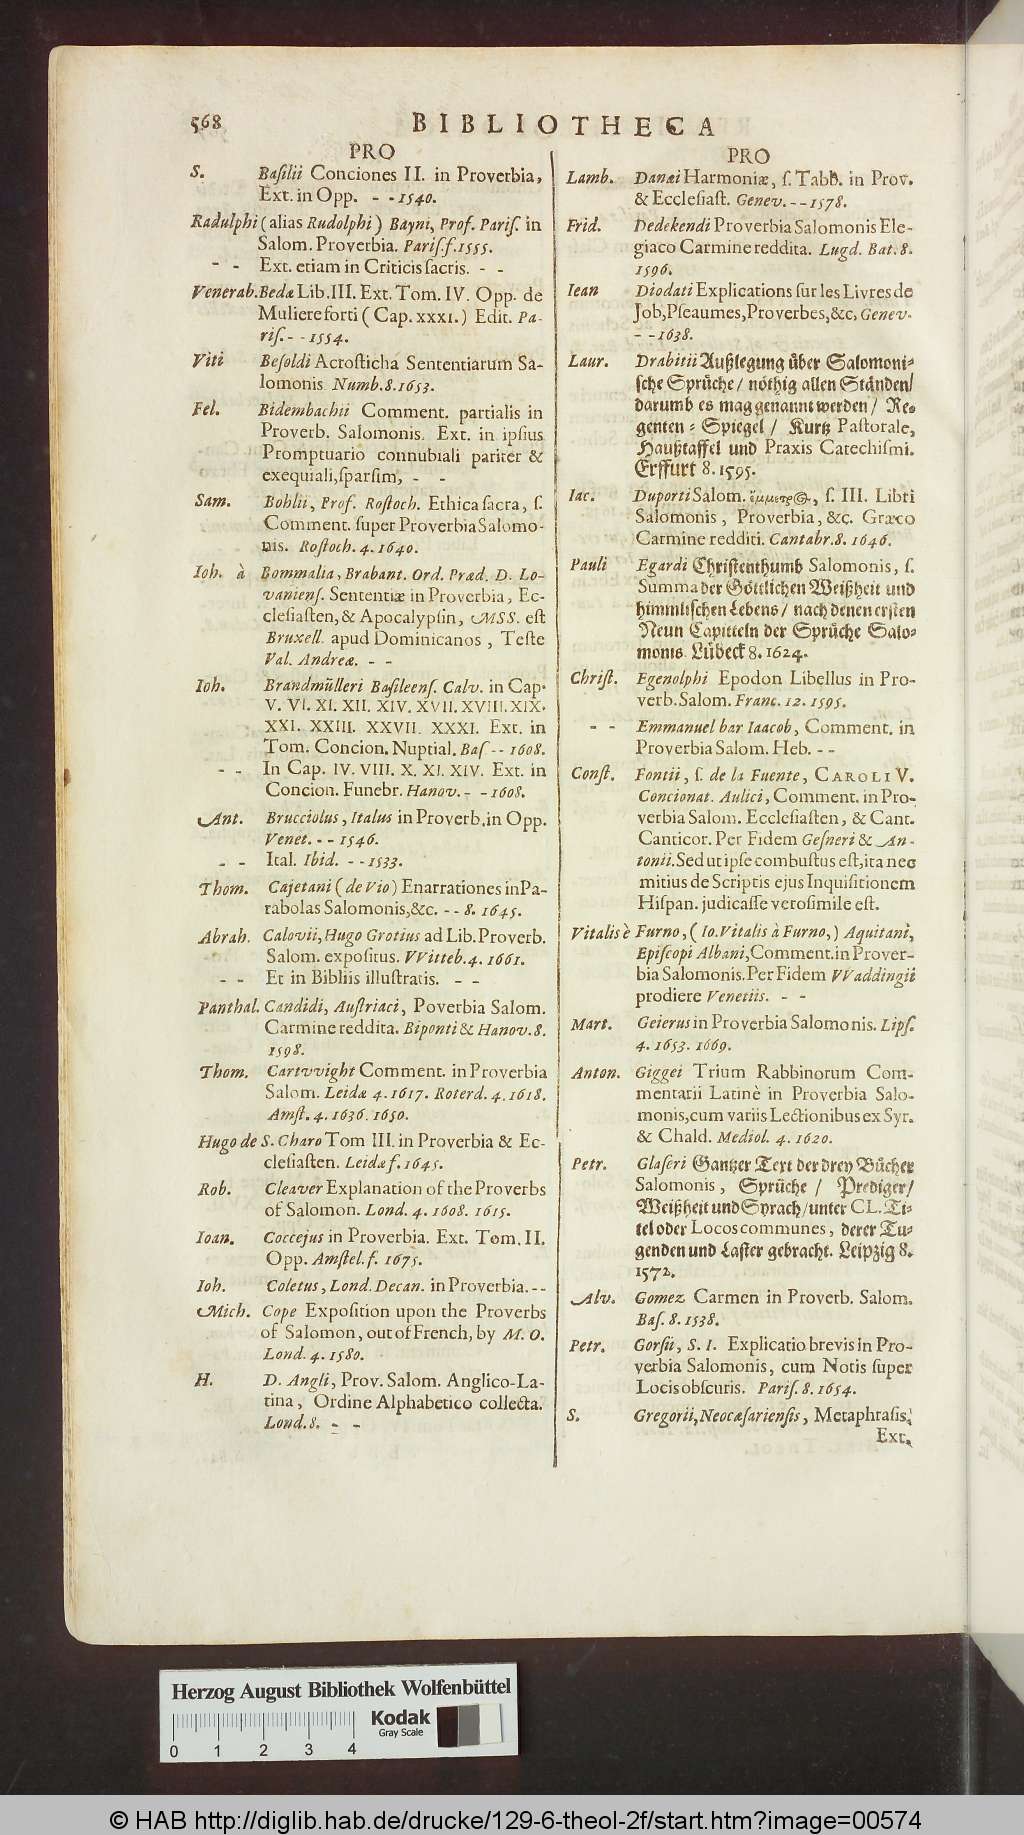 568 BIBLIOTHECA
PRO
S. Baſilii Conciones II. in Proverbia,
Ext. in Opp. - - 1540.
Radulphi (alias Rudolphi) Bayni, Prof. Pariſ. in
Salom. Proverbia. Pariſ. f. 1555.
- - Ext. etiam in Criticis ſacris. - -
Venerab. Bedæ Lib. III. Ext. Tom. IV. Opp. de
Muliere forti (Cap. XXXI.) Edit. Pa-
riſ. - - 1554.
Viti Beſoldi Acroſticha Sententiarum Sa-
lomonis Numb. 8. 1653.
Fel. Bidembachii Comment. partialis in
Proverb. Salomonis. Ext. in ipſius
Promptuario connubiali pariter &
exequiali, ſparſim, - -
Sam. Bohlii, Prof. Roſtoch. Ethica ſacra, ſ.
Comment. ſuper Proverbia Salomo-
nis. Roſtoch. 4. 1640.
Ioh. à Bommalia, Brabant. Ord. Præd. D. Lo-
vanienſ. Sententiæ in Proverbia, Ec-
cleſiaſten, & Apocalypſin, MSS. eſt
Bruxell. apud Dominicanos, Teſte
Val. Andreæ. - -
Ioh. Brandmülleri Baſileenſ. Calv. in Cap.
V. VI. XI. XII. XIV. XVII. XVIII. XIX.
XXI. XXIII. XXVII. XXXI. Ext. in
Tom. Concion. Nuptial. Baſ - - 1608.
- - In Cap. IV. VIII. X. XI. XIV. Ext. in
Concion. Funebr. Hanov. - - 1608.
Ant. Brucciolus, Italus in Proverb. in Opp.
Venet. - - 1546.
- - Ital. Ibid. - - 1533.
Thom. Cajetani (de Vio) Enarrationes in Pa-
rabolas Salomonis, &c. - - 8. 1645.
Abrah. Calovii, Hugo Grotius ad Lib. Proverb.
Salom. expoſitus. VVitteb. 4. 1661.
- - Et in Bibliis illuſtratis. - -
Panthal. Candidi, Auſtriaci, Poverbia Salom.
Carmine reddita. Biponti & Hanov. 8.
1598.
Thom. Cartvvight Comment. in Proverbia
Salom. Leidæ 4. 1617. Roterd. 4. 1618.
Amſt. 4. 1636. 1650.
Hugo de S. Charo Tom III. in Proverbia & Ec-
cleſiaſten. Leidæ f. 1645.
Rob. Cleaver Explanation of the Proverbs
of Salomon. Lond. 4. 1608. 1615.
Ioan. Coccejus in Proverbia. Ext. Tom. II.
Opp. Amſtel. f. 1675.
Ioh. Coletus, Lond. Decan. in Proverbia. - -
Mich. Cope Expoſition upon the Proverbs
of Salomon, out of French, by M. O.
Lond. 4. 1580.
H. D. Angli, Prov. Salom. Anglico-La-
tina, Ordine Alphabetico collecta.
Lond. 8. - -
PRO
Lamb. Danæi Harmoniæ, ſ. Tabb. in Prov.
& Eccleſiaſt. Genev. - - 1578.
Frid. Dedekendi Proverbia Salomonis Ele-
giaco Carmine reddita. Lugd. Bat. 8.
1596.
Iean Diodati Explications ſur les Livres de
Job, Pſeaumes, Proverbes, &c, Genev.
- - 1638.
Laur. Drabitii Außlegung über Salomoni-
ſche Sprüche/ nöthig allen Ständen/
darumb es mag genannt werden/ Re-
genten-Spiegel/ Kurtz Paſtorale,
Haußtaffel und Praxis Catechiſmi.
Erffurt 8. 1595.
Iac. Duporti Salom. ἔμμετρος, ſ. III. Libri
Salomonis, Proverbia, &c. Græco
Carmine redditi. Cantabr. 8. 1646.
Pauli Egardi Chriſtenthumb Salomonis, ſ.
Summa der Göttlichen Weißheit und
himmliſchen Lebens/ nach denen erſten
Neun Capitteln der Sprüche Salo-
monis. Lübeck 8. 1624.
Chriſt. Egenolphi Epodon Libellus in Pro-
verb. Salom. Franc. 12. 1595.
- - Emmanuel bar Iaacob, Comment. in
Proverbia Salom. Heb. - -
Conſt. Fontii, ſ. de la Fuente, CAROLI V.
Concionat. Aulici, Comment. in Pro-
verbia Salom. Eccleſiaſten, & Cant.
Canticor. Per Fidem Geſneri & An-
tonii. Sed ut ipſe combuſtus eſt, ita nec
mitius de Scriptis ejus Inquiſitionem
Hiſpan. judicaſſe veroſimile eſt.
Vitalis è Furno, (Io. Vitalis à Furno,) Aquitani,
Epiſcopi Albani, Comment. in Prover-
bia Salomonis. Per Fidem VVaddingii
prodiere Venetiis. - -
Mart. Geierus in Proverbia Salomonis. Lipſ.
4. 1653. 1669.
Anton. Giggei Trium Rabbinorum Com-
mentarii Latinè in Proverbia Salo-
monis, cum variis Lectionibus ex Syr.
& Chald. Mediol. 4. 1620.
Petr. Glaſeri Gantzer Text der drey Bücher
Salomonis, Sprüche/ Prediger/
Weißheit und Sprach/ unter CL. Ti-
tel oder Locos communes, derer Tu-
genden und Laſter gebracht. Leipzig 8.
1572.
Alv. Gomez Carmen in Proverb. Salom.
Baſ. 8. 1538.
Petr. Gorſii, S. I. Explicatio brevis in Pro-
verbia Salomonis, cum Notis ſuper
Locis obſcuris. Pariſ. 8. 1654.
S. Gregorii, Neocæſarienſis, Metaphraſis,
Ext.
Herzog August Bibliothek Wolfenbüttel
Kodak
Gray Scale
0 1 2 3 4
© HAB http://diglib.hab.de/drucke/129-6-theol-2f/start.htm?image=00574